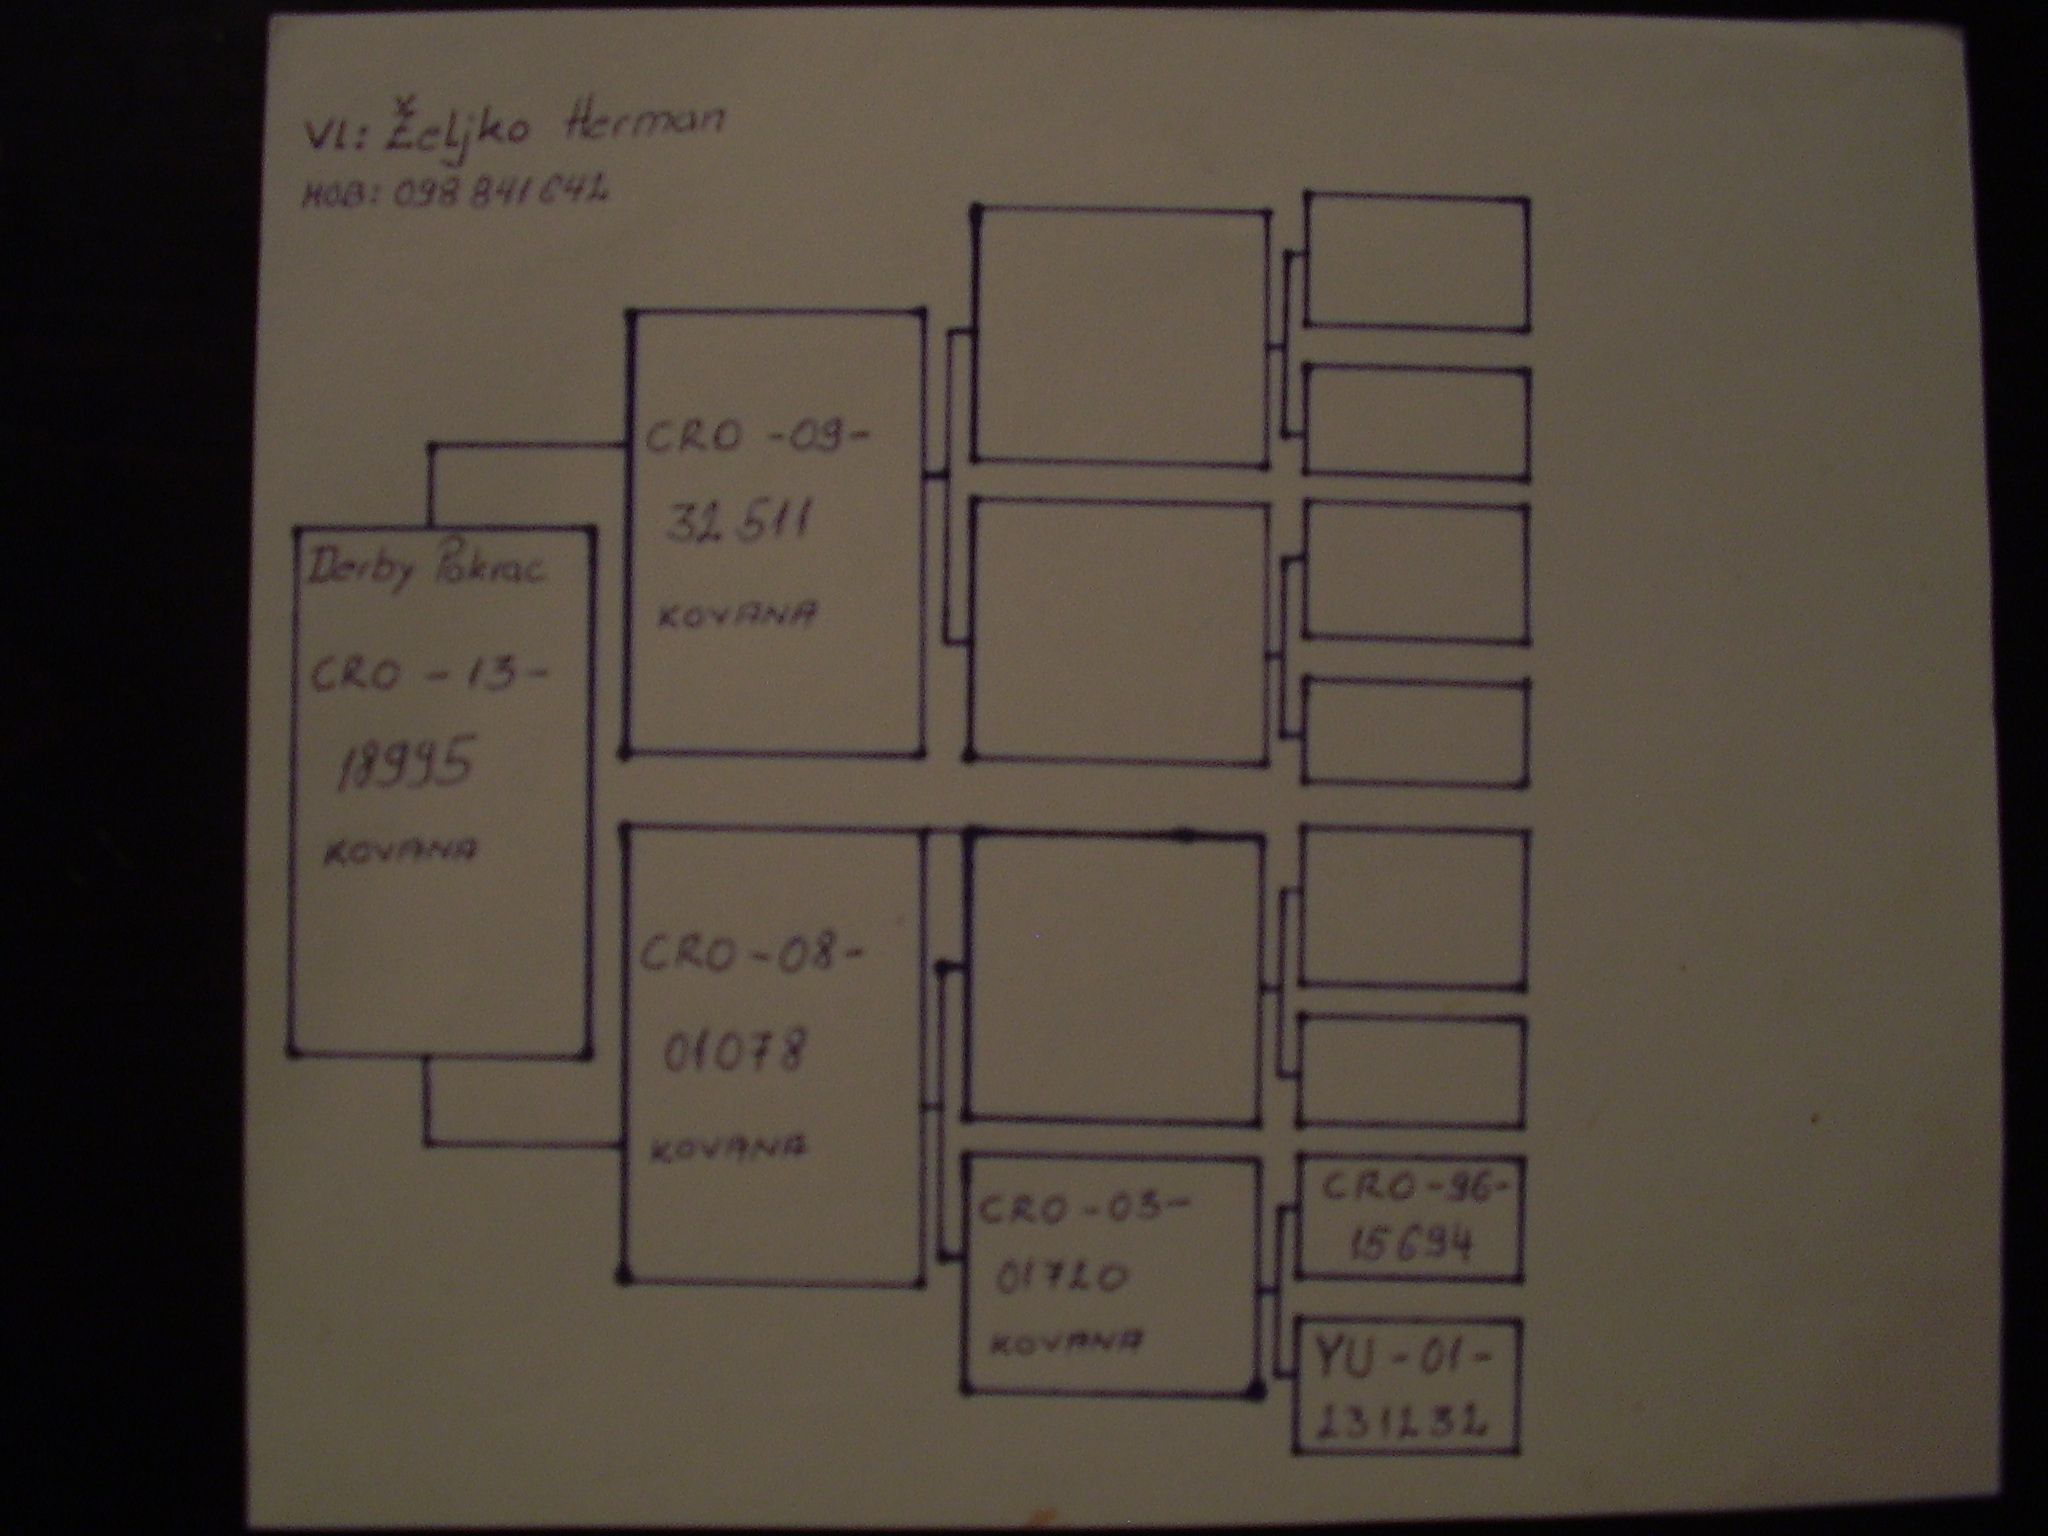 Vl: Željko Herman
MOB: 098 841 642
Derby Pakrac
CRO - 13 -
18995
KOVANA
CRO - 09 -
32 511
KOVANA
CRO - 08 -
01078
KOVANA
CRO - 03 -
01720
KOVANA
CRO - 96 -
15694
YU - 01 -
231232